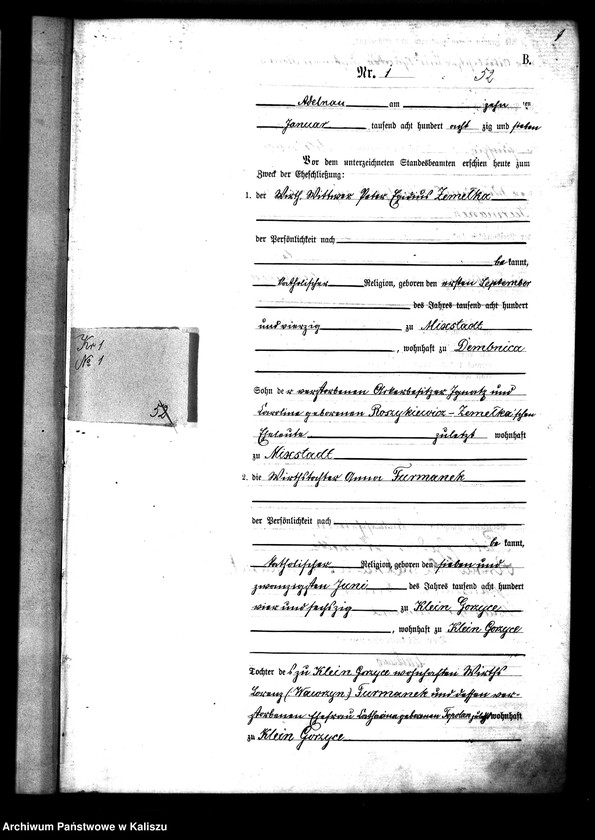 1
B.
Nr. 1
52
Adelnau am zehn ten
Januar tausend acht hundert acht zig und sieben
Vor dem unterzeichneten Standesbeamten erschien heute zum
Zweck der Eheschließung:
1. der Wirth, Wittwer Peter Egidius Zemełka
der Persönlichkeit nach
be kannt,
katholischer Religion, geboren den ersten September
des Jahres tausend acht hundert
und vierzig zu Mixstadt
, wohnhaft zu Dembnica
Sohn der verstorbenen Ackerbesitzer Ignatz und
Caroline geborenen Roszykiewicz-Zemełka'schen
Eheleute zuletzt wohnhaft
zu Mixstadt
2. die Wirthstochter Anna Furmanek
der Persönlichkeit nach
be kannt,
katholischer Religion, geboren den sieben und
zwanzigsten Juni des Jahres tausend acht hundert
vier und sechszig zu Klein Gorzyce
, wohnhaft zu Klein Gorzyce
Tochter des zu Klein Gorzyce wohnhaften Wirths
Lorenz (Wawrzyn) Furmanek und dessen ver-
storbenen Ehefrau Catharina geborenen zuletzt wohnhaft
zu Klein Gorzyce
Kr 1
No 1
52
Archiwum Państwowe w Kaliszu